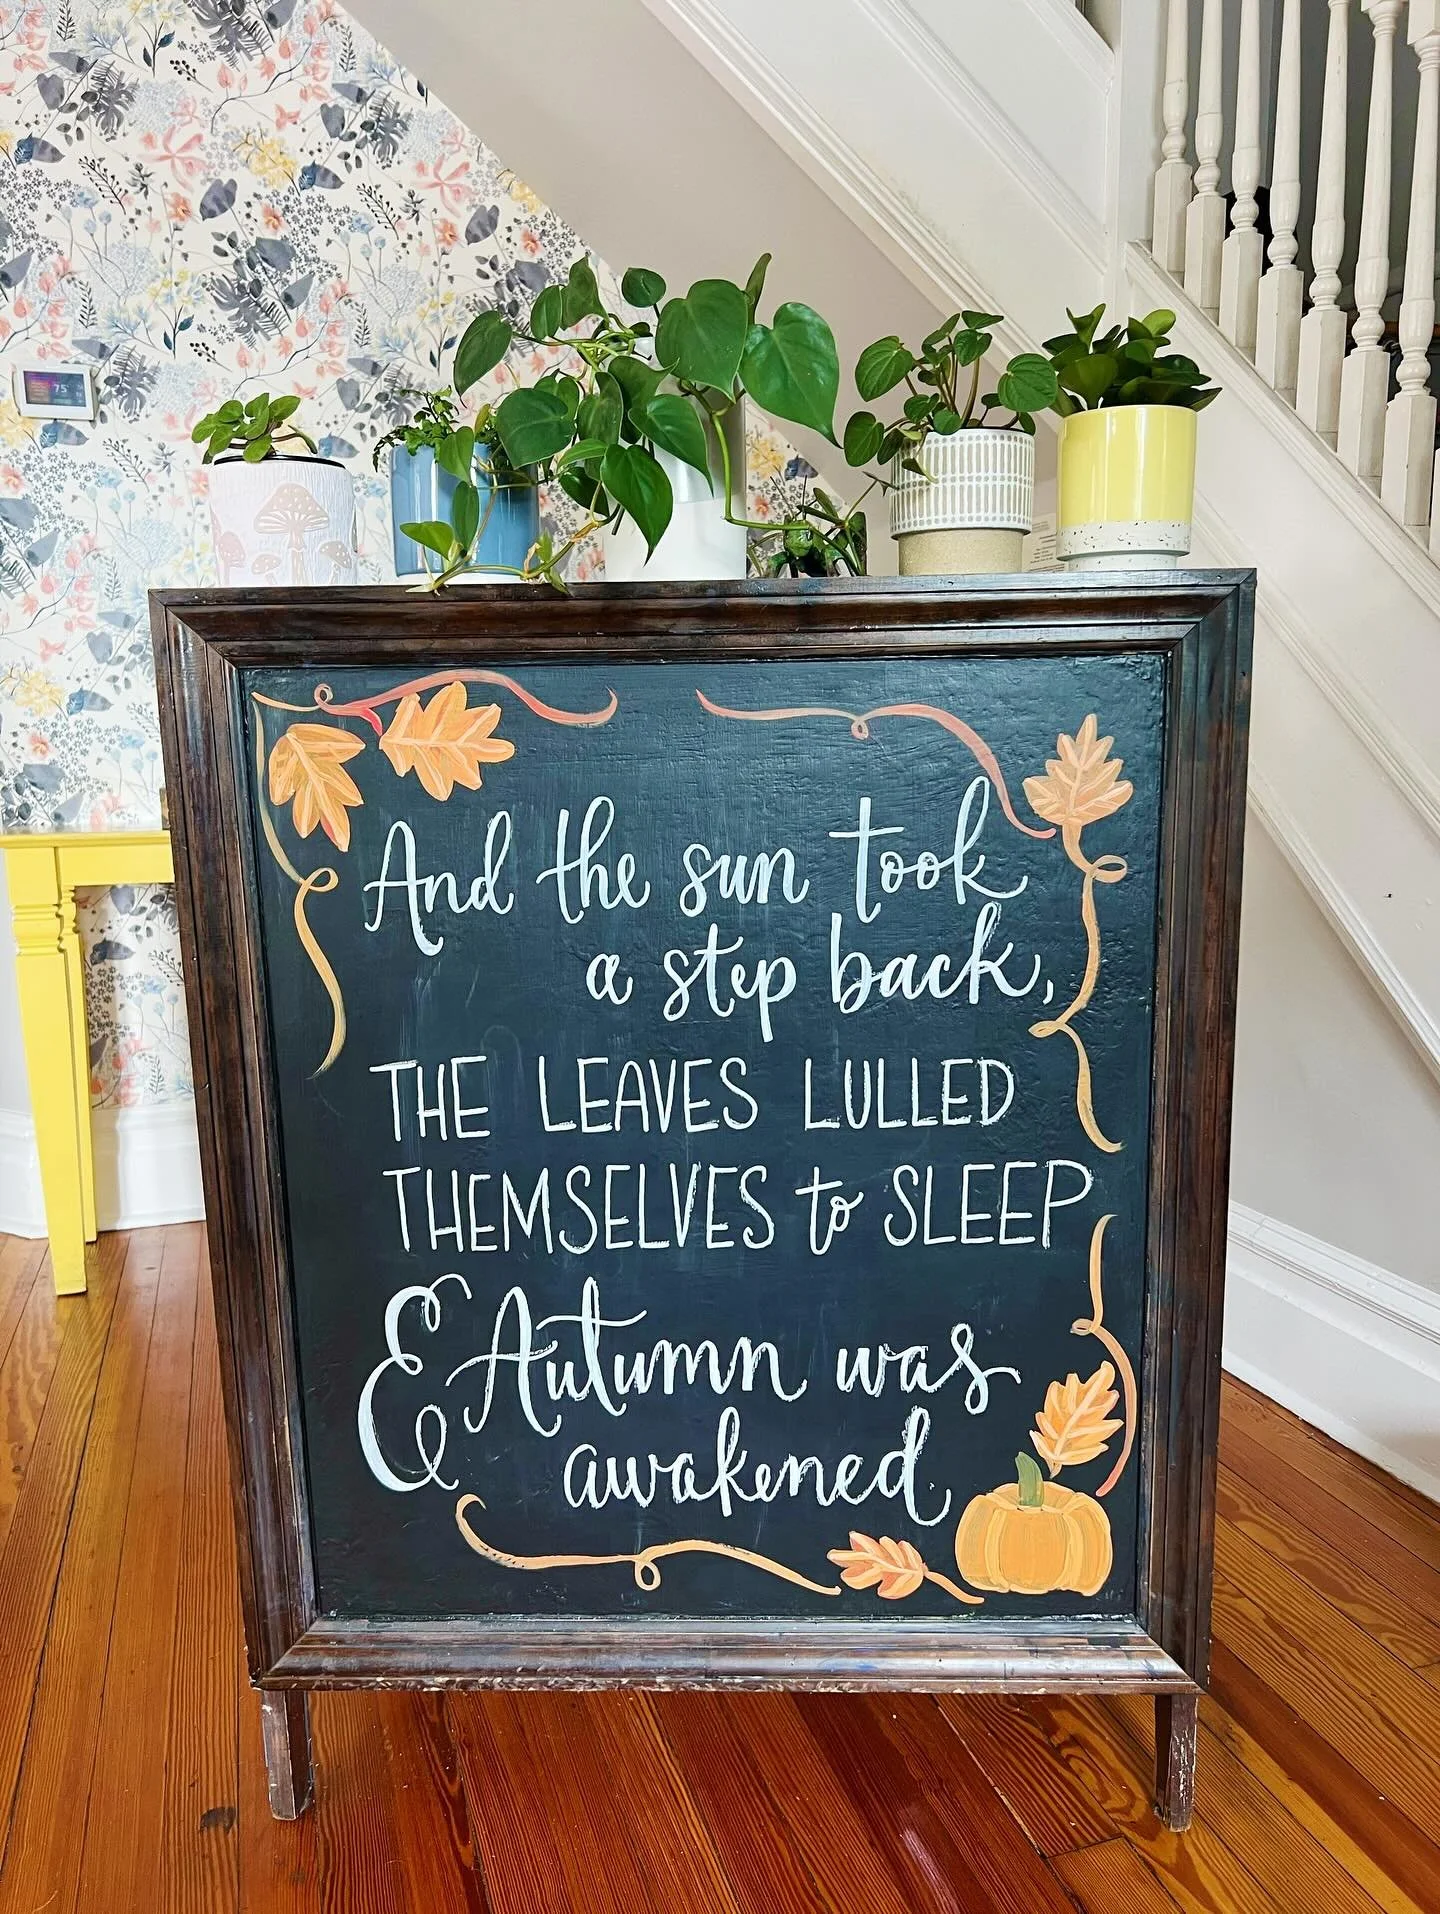 75
And the sun took
a step back,
THE LEAVES LULLED
THEMSELVES to SLEEP
& Autumn was
awakened